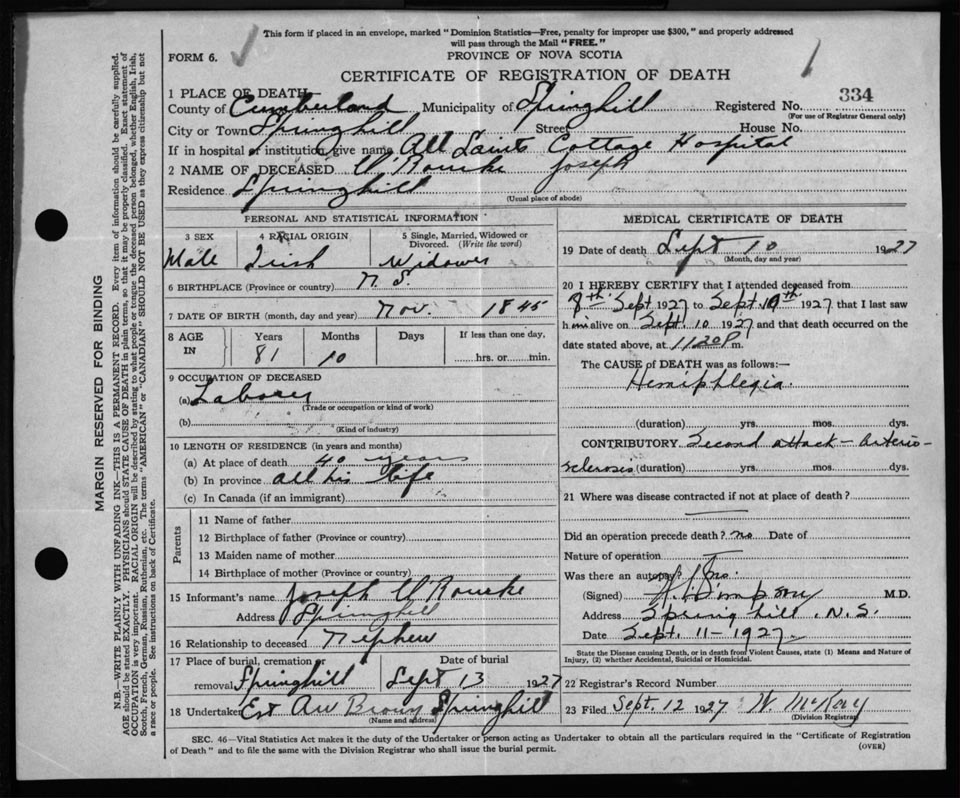 This form if placed in an envelope, marked "Dominion Statistics—Free, penalty for improper use $300," and properly addressed
will pass through the Mail "FREE."
FORM 6.
PROVINCE OF NOVA SCOTIA
CERTIFICATE OF REGISTRATION OF DEATH
1 PLACE OF DEATH
County of Cumberland Municipality of Springhill Registered No. 334
(For use of Registrar General only)
City or Town Springhill Street House No.
If in hospital or institution, give name All Saints Cottage Hospital
2 NAME OF DECEASED O'Rourke Joseph
Residence Springhill
(Usual place of abode)
PERSONAL AND STATISTICAL INFORMATION
3 SEX 4 RACIAL ORIGIN 5 Single, Married, Widowed or Divorced. (Write the word)
Male Irish Widower
6 BIRTHPLACE (Province or country) N. S.
7 DATE OF BIRTH (month, day and year) Nov. 1845
8 AGE IN Years Months Days If less than one day,
81 10 hrs. or min.
9 OCCUPATION OF DECEASED
(a) Laborer
(Trade or occupation or kind of work)
(b)
(Kind of industry)
10 LENGTH OF RESIDENCE (in years and months)
(a) At place of death 40 years
(b) In province all his life
(c) In Canada (if an immigrant)
Parents
11 Name of father
12 Birthplace of father (Province or country)
13 Maiden name of mother
14 Birthplace of mother (Province or country)
15 Informant's name Joseph O'Rourke
Address Springhill
16 Relationship to deceased Nephew
17 Place of burial, cremation or removal Date of burial
Springhill Sept 13 1927
18 Undertaker Est AW Brown Springhill
(Name and address)
MEDICAL CERTIFICATE OF DEATH
19 Date of death Sept 10 1927
(Month, day and year)
20 I HEREBY CERTIFY that I attended deceased from
8th Sept 1927 to Sept 10th 1927 that I last saw
him alive on Sept. 10 1927 and that death occurred on the
date stated above, at 1120 P m.
The CAUSE of DEATH was as follows:—
Hemiphlegia.
(duration) yrs. mos. dys.
CONTRIBUTORY Second attack - arterio-
scleroses (duration) yrs. mos. dys.
21 Where was disease contracted if not at place of death?
Did an operation precede death? no Date of
Nature of operation
Was there an autopsy? no
(Signed) M.D.
Address Springhill, N.S.
Date Sept. 11 - 1927
State the Disease causing Death, or in death from Violent Causes, state (1) Means and Nature of
Injury, (2) whether Accidental, Suicidal or Homicidal.
22 Registrar's Record Number
23 Filed Sept. 12 1927 W. McKay
(Division Registrar)
SEC. 46—Vital Statistics Act makes it the duty of the Undertaker or person acting as Undertaker to obtain all the particulars required in the "Certificate of Registration
of Death" and to file the same with the Division Registrar who shall issue the burial permit.
(OVER)
MARGIN RESERVED FOR BINDING
N.B.—WRITE PLAINLY WITH UNFADING INK—THIS IS A PERMANENT RECORD. Every item of information should be carefully supplied.
AGE should be stated EXACTLY. PHYSICIANS should STATE CAUSE OF DEATH in plain terms, so that it may be properly classified. Exact statement of
OCCUPATION is very important. RACIAL ORIGIN will be described by stating to what people or tongue the deceased person belonged, whether English, Irish,
Scotch, French, German, Russian, Ruthenian, etc. The terms "AMERICAN" or "CANADIAN" SHOULD NOT BE USED as they express citizenship but not
a race or people. See instructions on back of Certificate.